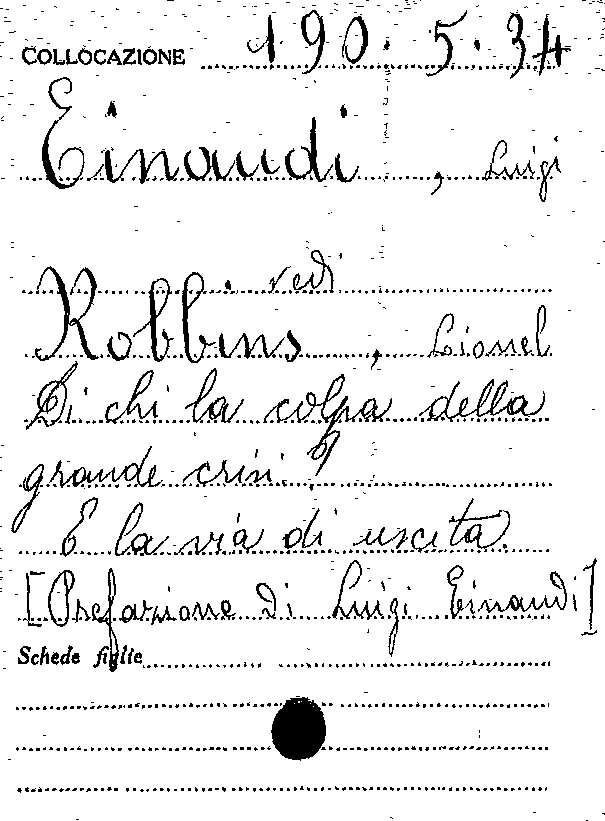 COLLOCAZIONE 190.5.34
Einaudi, Luigi
vedi
Robbins, Lionel
Di chi la colpa della
grande crisi?
E la via di uscita.
[Prefazione di Luigi Einaudi]
Schede figlie